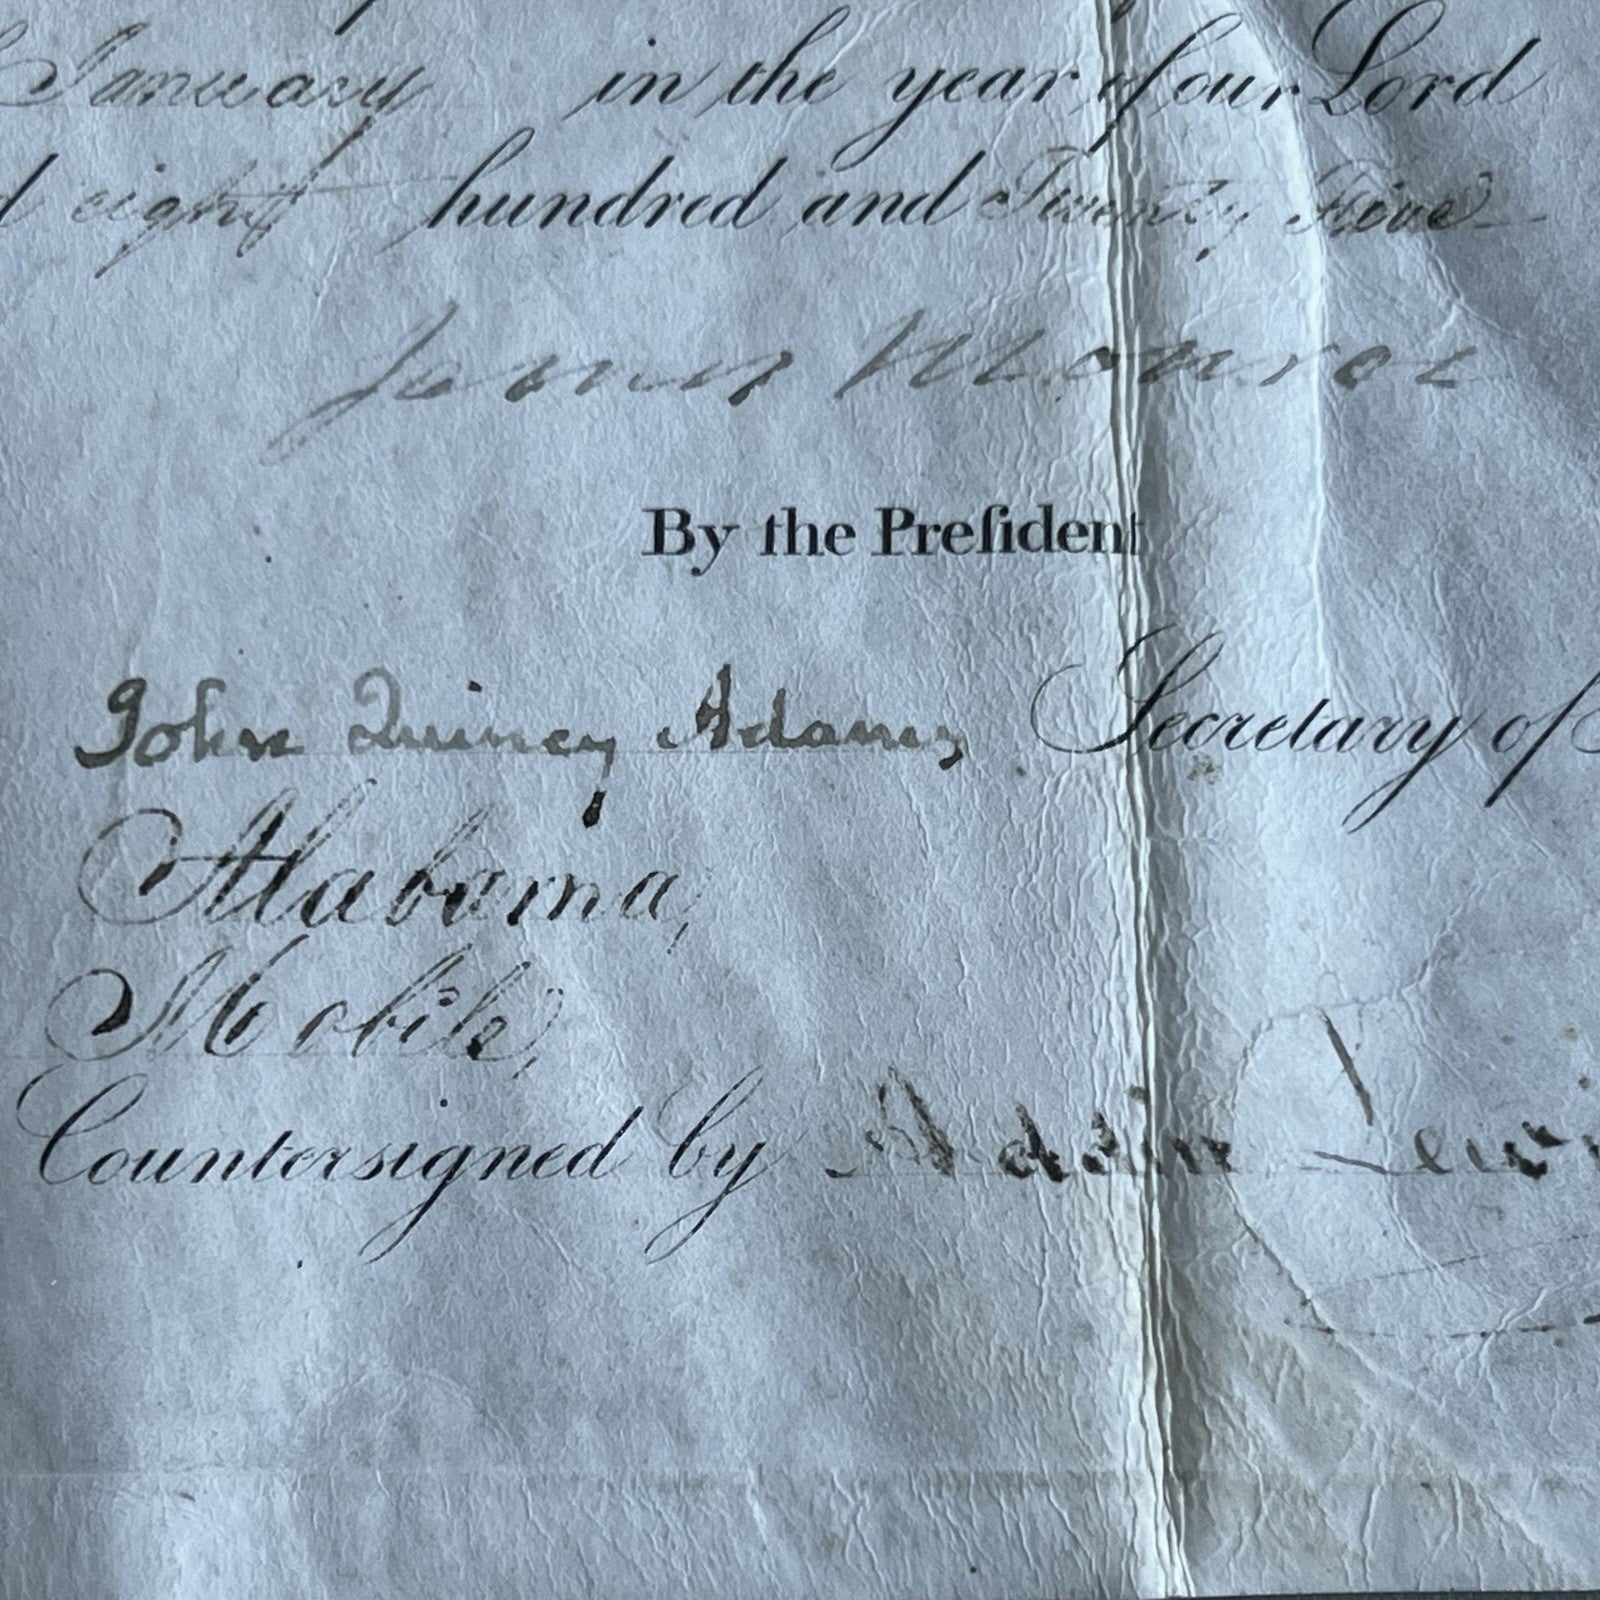 January in the year of our Lord
eight hundred and Twenty Five
James Monroe
By the Preſident
John Quincy Adams Secretary of
Alabama,
Mobile,
Countersigned by Addin Lewis